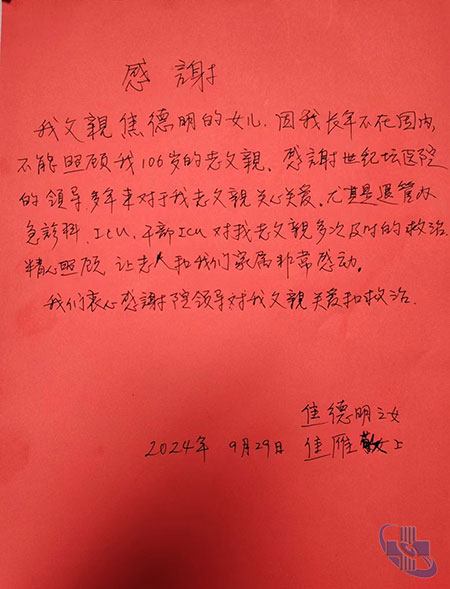 感 謝
我父親焦德明的女儿.因我長年不在国内,
不能照顾我106岁的老父親。感謝世纪坛医院
的領导多年来对于我老父親关心关爱。尤其是退管办
急診科、ICU、干部ICU对我老父親多次及时的救治.
精心照顾 让老人和我们家属非常感动。
我们衷心感謝院领导对我父親关爱和救治.
焦德明之女
2024年 9月29日 焦雁 敬上